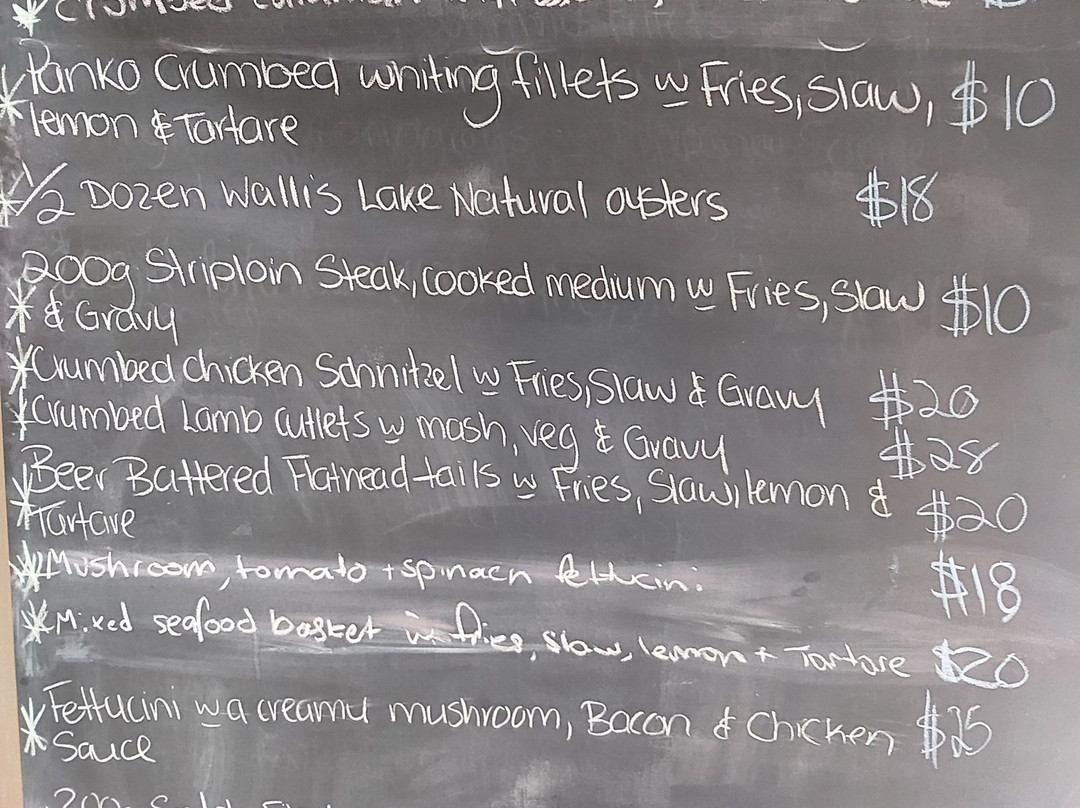 * Crumbed
Panko Crumbed whiting fillets w Fries, Slaw, $10
* lemon & Tartare
* 1/2 Dozen Wallis Lake Natural oysters $18
200g Striploin Steak, cooked medium w Fries, Slaw $10
* & Gravy
* Crumbed chicken Schnitzel w Fries, Slaw & Gravy $20
* Crumbed Lamb cutlets w mash, veg & Gravy $28
Beer Battered Flathead tails w Fries, Slaw, lemon & $20
* Tartare
* Mushroom, tomato + spinach fettucini $18
* Mixed seafood basket w fries, slaw, lemon + Tartare $20
Fettucini w a creamy mushroom, Bacon & Chicken $25
* Sauce
200g